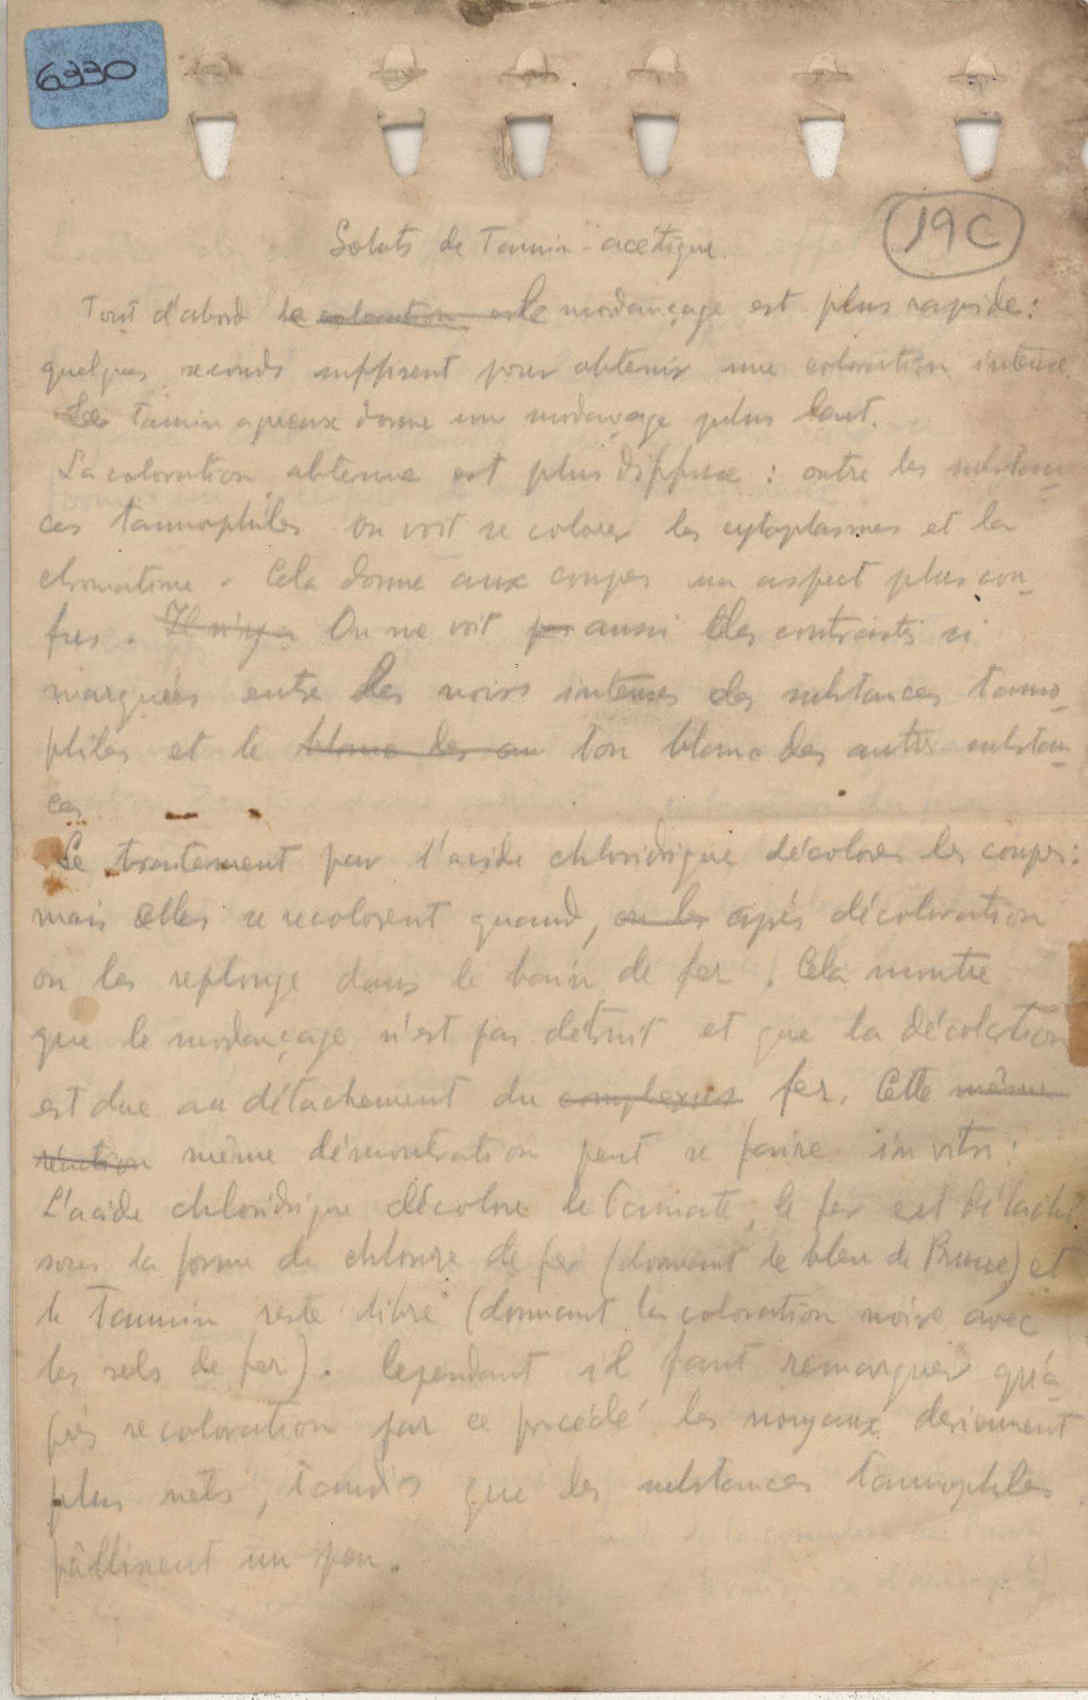 6330
19C
Soluts de Tannin-acétique
Tout d'abord le coloration est le mordançage est plus rapide:
quelques seconds suffisent pour obtenir une coloration intense.
Le Tannin aqueux donne un mordançage plus lent.
La coloration obtenue est plus diffuse : outre les substan-
ces tannophiles on voit se colorer les cytoplasmes et la
chromatine. Cela donne aux coupes un aspect plus con-
fus. Il n'y a On ne voit pas aussi les contrastes si
marqués entre les noirs intenses des substances tanno-
philes et le blanc des au ton blanc des autres substan-
ces
Le traitement par l'acide chloridrique décolore les coupes:
mais elles se recolorent quand, on les après décoloration
on les replonge dans le bain de fer. Cela montre
que le mordançage n'est pas détruit et que la décoloration
est due au détachement du complexes fer. Cette même
réaction même démonstration peut se faire in vitro:
L'acide chloridrique décolore le Tannate, le fer est détaché
sous la forme de chlorure de fer (donnant le bleu de Prusse) et
le Tannin reste libre (donnant la coloration noire avec
les sels de fer). Cependant il faut remarquer qu'a-
près recoloration par ce procédé les noyaux deviennent
plus nets, tandis que les substances tannophiles
pâllissent un peu.